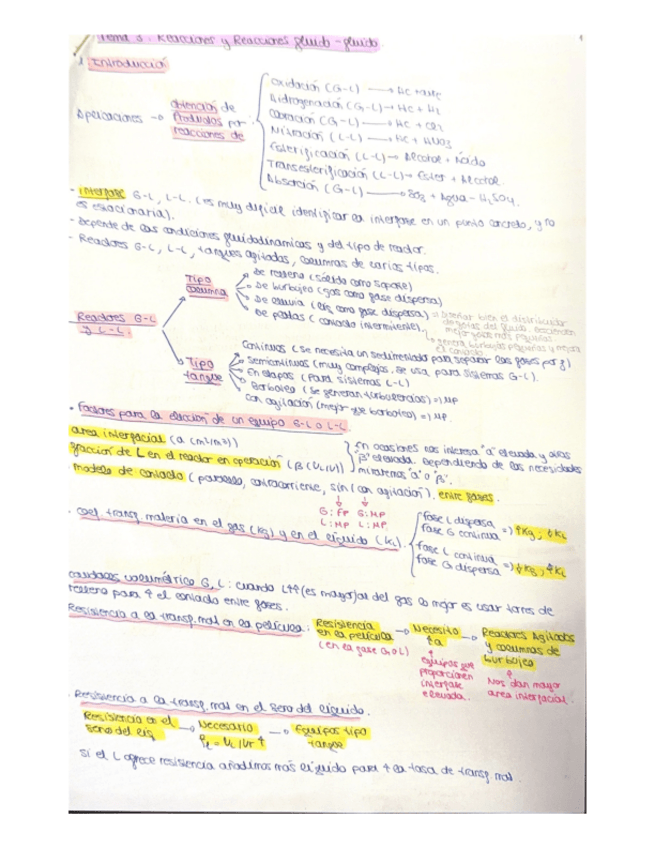 Tema 3: Reactores y Reacciones fluido-fluido.
1. Introducción
Aplicaciones → obtención de Productos por reacciones de
Oxidación (G-L) → HC + aire
Hidrogenación (G-L) → HC + H2
Cloración (G-L) → HC + Cl2
Nitración (L-L) → HC + HNO3
Esterificación (L-L) → Alcohol + Ácido
Transesterificación (L-L) → Ester + Alcohol.
Absorción (G-L) → SO3 + Agua - H2SO4.
- Interfase G-L, L-L. (es muy difícil identificar la interfase en un punto concreto, y no
es estacionaria).
- Depende de las condiciones fluidodinámicas y del tipo de reactor.
- Reactores G-L, L-L, tanques agitados, columnas de varios tipos.
Reactores G-L y L-L.
Tipo columna
De relleno (sólido como soporte)
De burbujeo (gas como fase dispersa)
De lluvia (líq como fase dispersa)
De platos (contacto intermitente)
= Diseñar bien el distribuidor
de gotas del fluido
mejor gotas más pequeñas
genera burbujas pequeñas y mejora
el contacto
Tipo tanque
Continuos (se necesita un sedimentador para separar las fases por ρ)
Semicontinuos (muy complejos, se usa para sistemas G-L).
En etapas (Para sistemas L-L)
Borboteo (se generan turbulencias) => MP
Con agitación (mejor que borboteo) => MP.
• Factores para la elección de un equipo G-L o L-L.
área interfacial (a (m²/m³))
fracción de L en el reactor en operación (β (VL/V))
En ocasiones nos interesa "a" elevada y otras
"β" elevada. Dependiendo de las necesidades
miraremos "a" o "β".
modelo de contacto (paralelo, contracorriente, sin/con agitación), entre fases.
G: FP G: MP
L: MP L: MP
. Coef. transp. materia en el gas (kg) y en el líquido (kL).
fase L dispersa
fase G continua => ↑kg, ↓kL
fase L continua
fase G dispersa => ↓kg, ↑kL
caudales volumétrico G, L: cuando L↑↑ (es mayor) al del gas lo mejor es usar torres de
relleno para ↑ el contacto entre fases.
Resistencia a la transp. mat en la película:
Resistencia en la película → Necesito ↑a → Reactores Agitados y columnas de burbujeo
(en la fase G o L)
equipos que proporcionen interfase elevada.
Nos dan mayor área interfacial.
. Resistencia a la transp. mat en el seno del líquido.
Resistencia en el seno del líq → Necesario βL = VL/Vr ↑ → Equipos tipo tanque
si el L ofrece resistencia añadimos más líquido para ↑ la tasa de transp. mat.